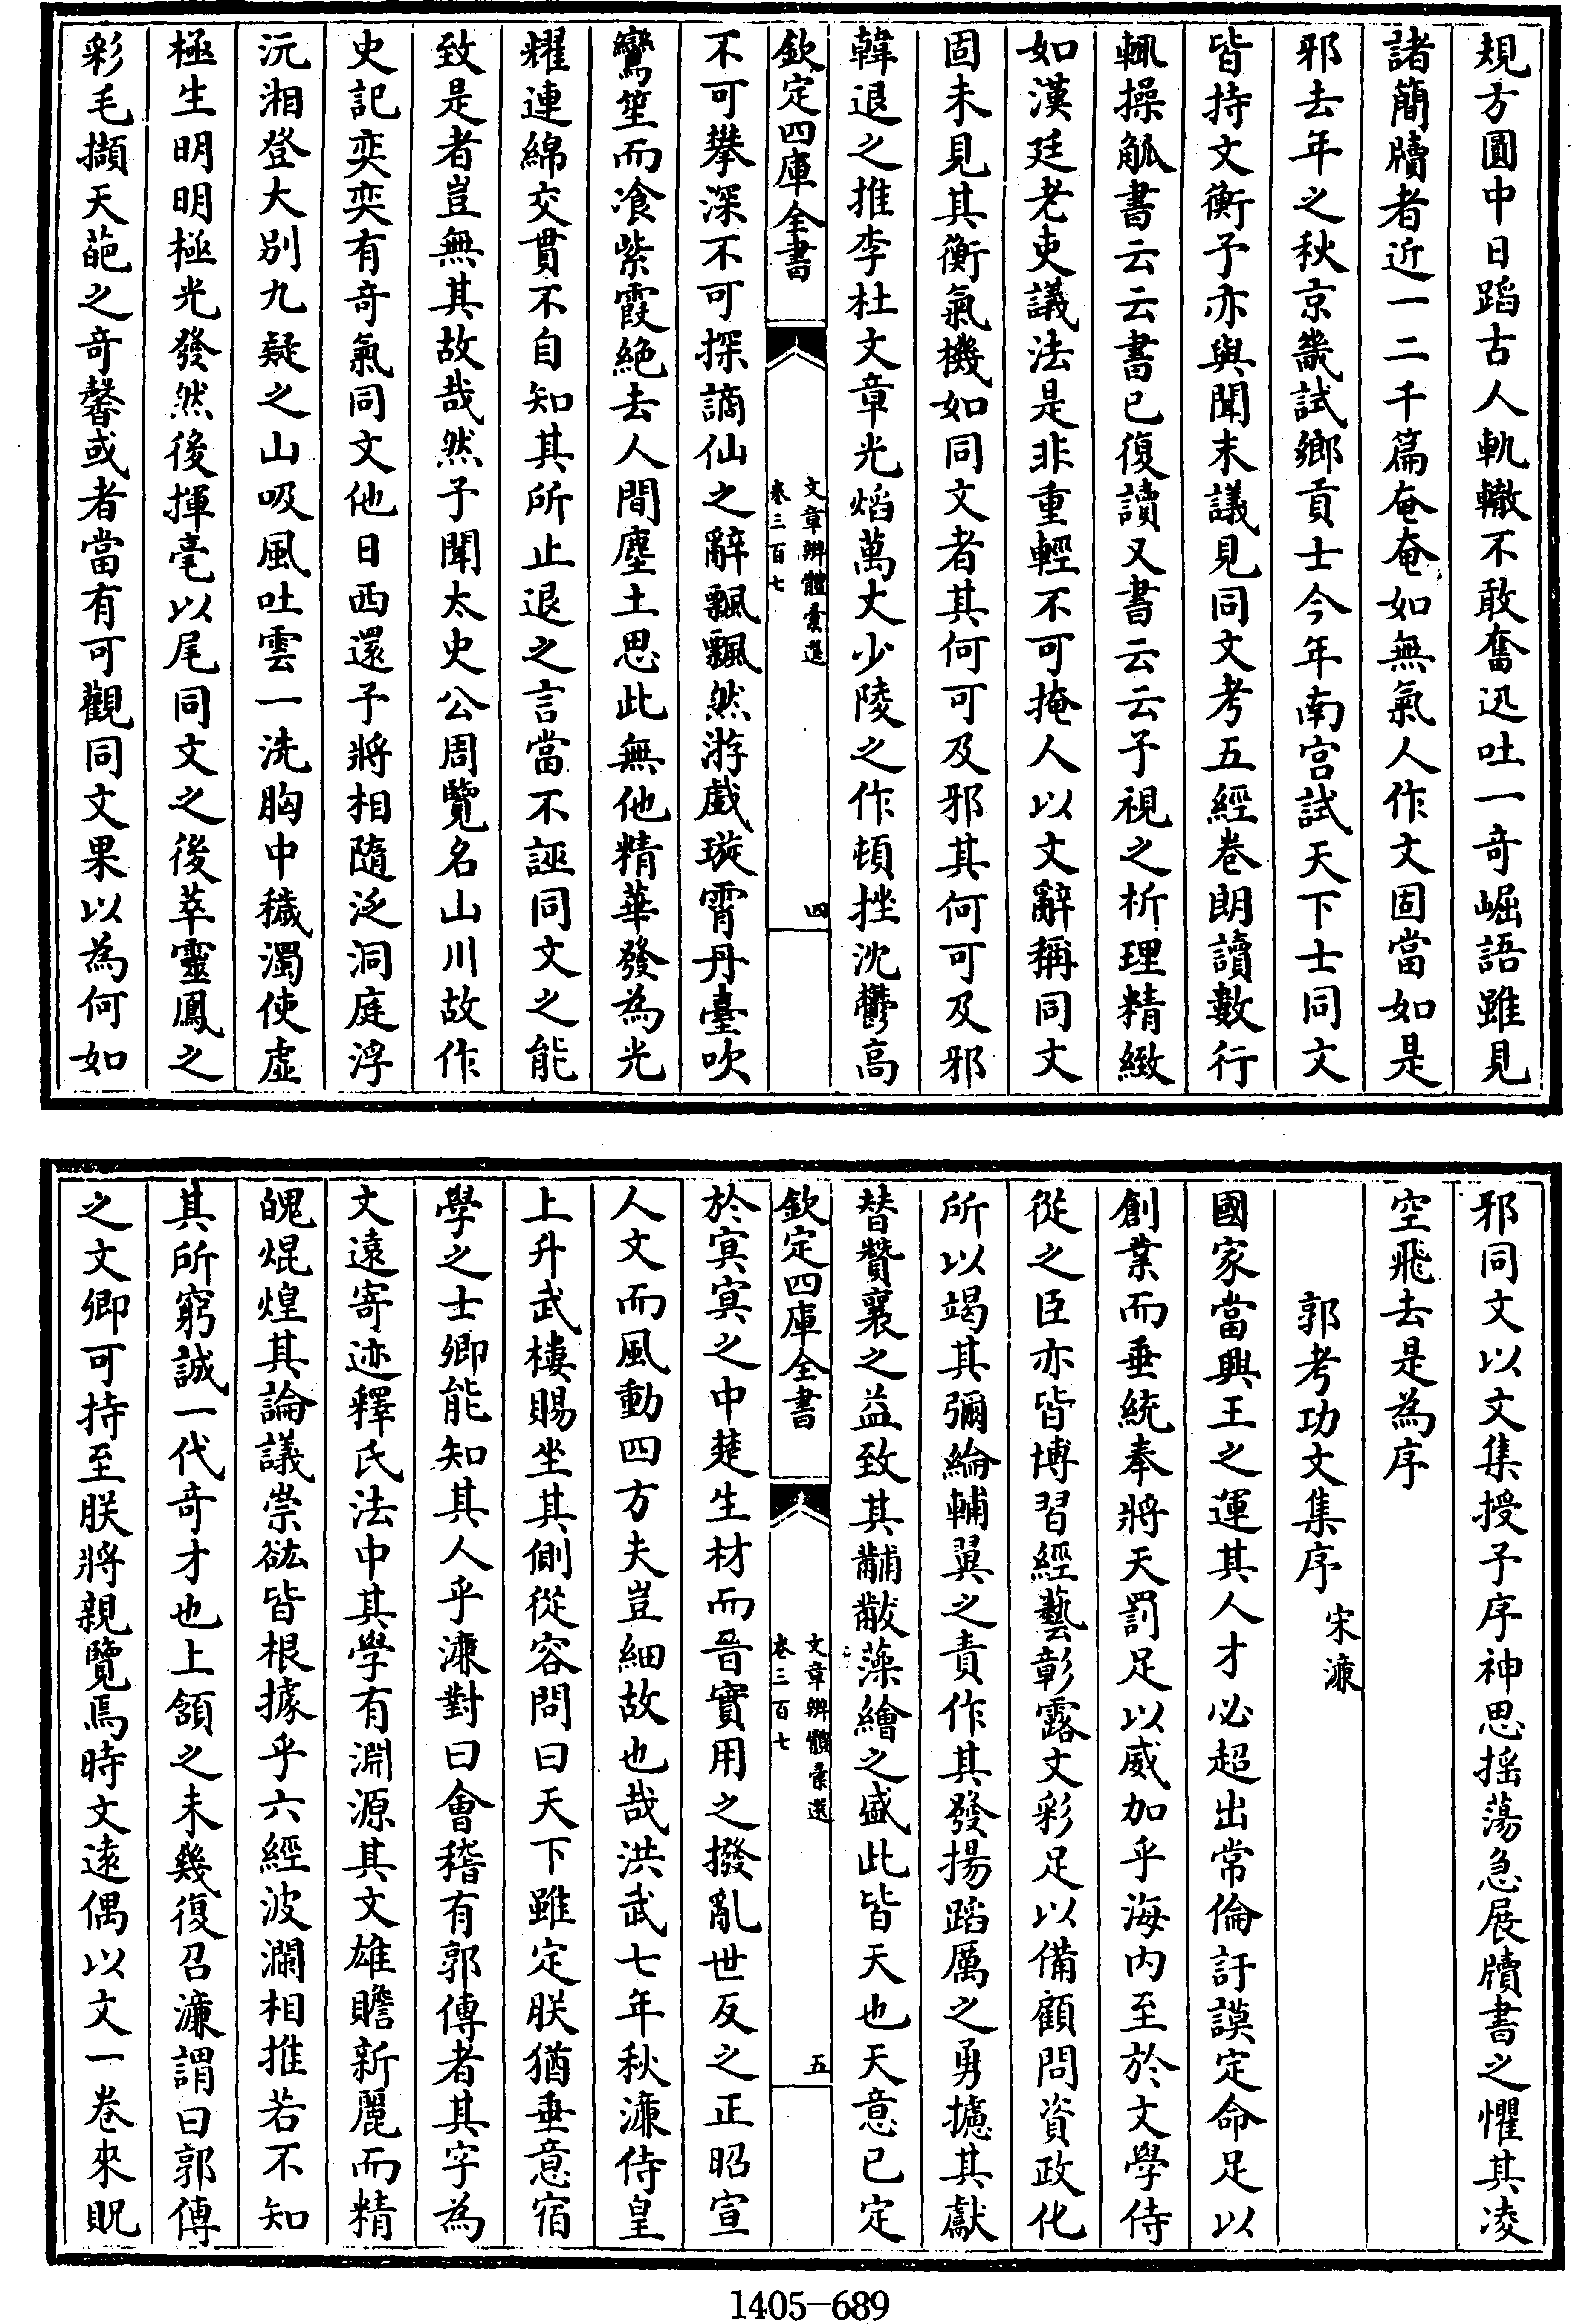 規方圓中日蹈古人軌轍不敢奮迅吐一奇崛語雖見
諸簡牘者近一二千篇奄奄如無氣人作文固當如是
邪去年之秋京畿試鄉貢士今年南宫試天下士同文
皆持文衡予亦與聞末議見同文考五經卷朗讀數行
輒操觚書云云書已復讀又書云云予視之析理精緻
如漢廷老吏議法是非重輕不可掩人以文辭稱同文
固未見其衡氣機如同文者其何可及邪其何可及邪
韓退之推李杜文章光熖萬丈少陵之作頓挫沈鬱高
欽定四庫全書
文章辨體彚選
卷三百七
四
不可攀深不可探謫仙之辭飄飄然游戲璇霄丹臺吹
鸞笙而飡紫霞絶去人間塵土思此無他精華發為光
耀連綿交貫不自知其所止退之之言當不誣同文之能
致是者豈無其故哉然予聞太史公周覽名山川故作
史記奕奕有奇氣同文他日西還予將相隨泛洞庭浮
沅湘登大別九疑之山吸風吐雲一洗胸中穢濁使虛
極生明明極光發然後揮毫以尾同文之後萃靈鳳之
彩毛擷天葩之奇馨或者當有可觀同文果以為何如
邪同文以文集授予序神思摇蕩急展牘書之懼其凌
空飛去是為序
郭考功文集序 宋濂
國家當興王之運其人才必超出常倫訏謨定命足以
創業而垂統奉將天罰足以威加乎海内至於文學侍
從之臣亦皆博習經藝彰露文彩足以備顧問資政化
所以竭其彌綸輔翼之責作其發揚蹈厲之勇攄其獻
替贊襄之益致其黼黻藻繪之盛此皆天也天意已定
欽定四庫全書
文章辨體彚選
卷三百七
五
於寞寞之中楚生材而晉實用之撥亂世反之正昭宣
人文而風動四方夫豈細故也哉洪武七年秋濂侍皇
上升武樓賜坐其側從容問曰天下雖定朕猶垂意宿
學之士卿能知其人乎濂對曰會稽有郭傳者其字為
文遠寄迹釋氏法中其學有淵源其文雄贍新麗而精
魄焜煌其論議崇谹皆根據乎六經波瀾相推若不知
其所窮誠一代奇才也上頷之未幾復召濂謂曰郭傳
之文卿可持至朕將親覽焉時文遠偶以文一卷來貺
1405-689